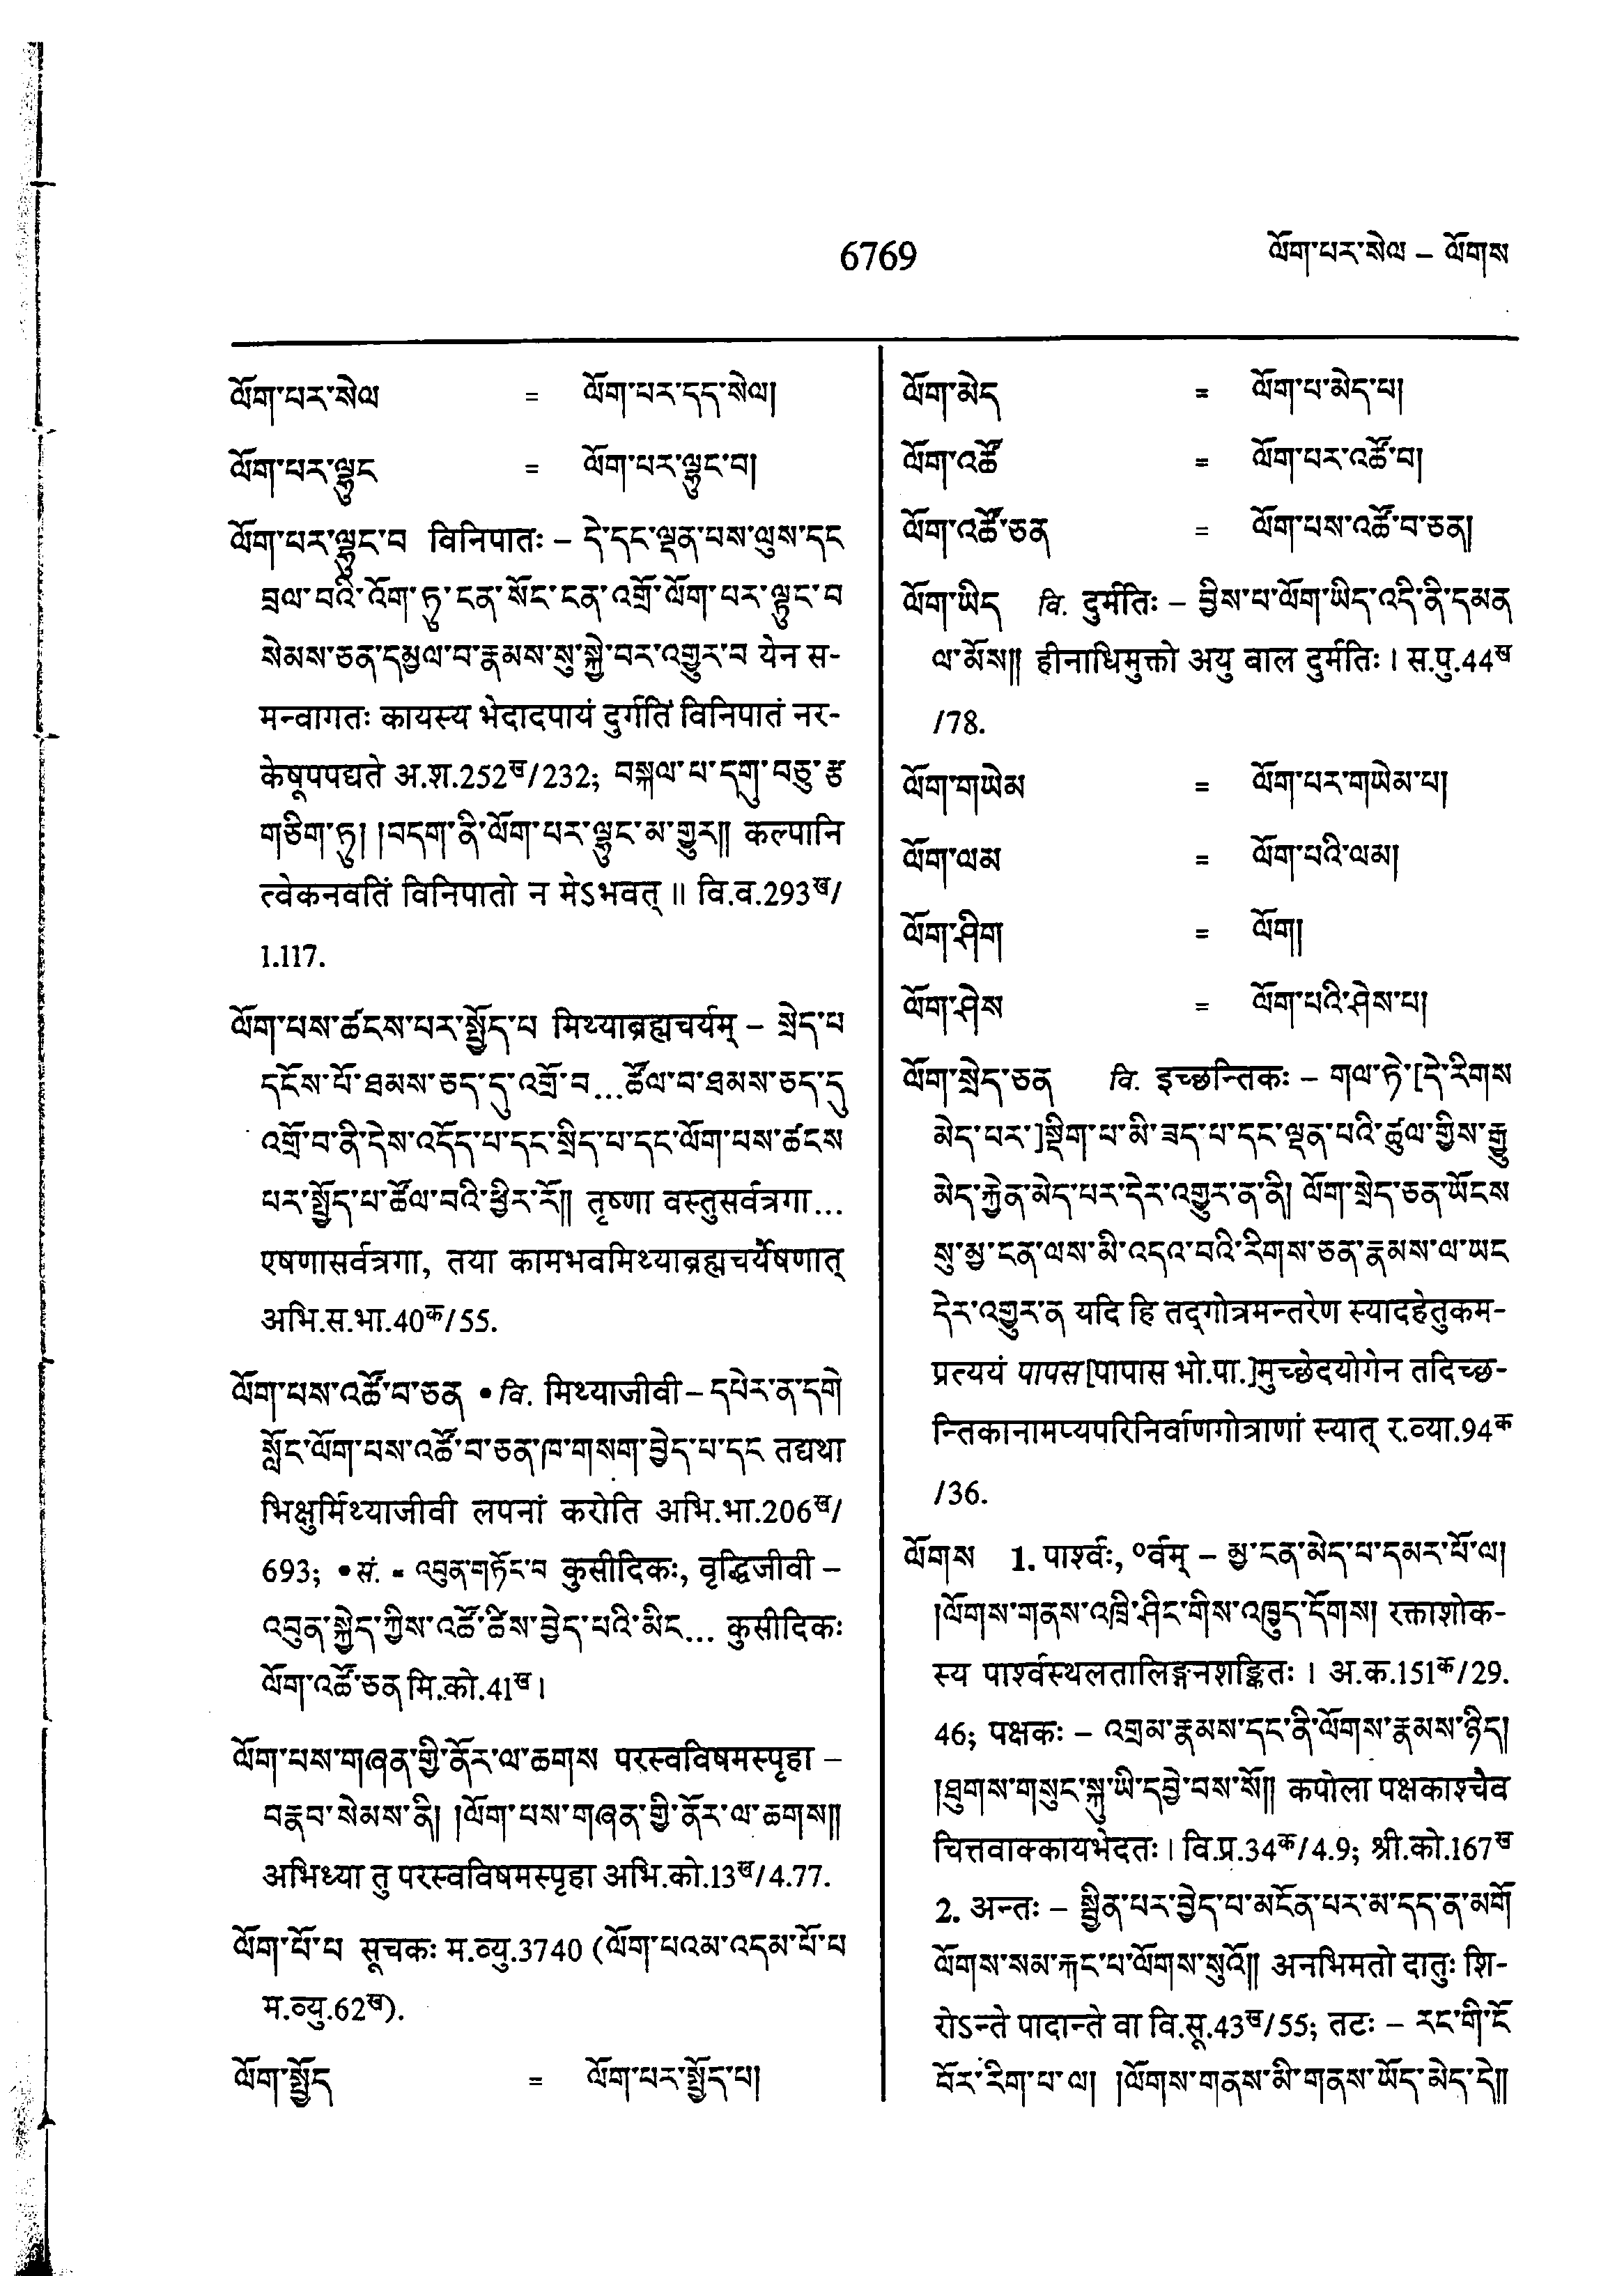 6769
ལོག་པར་སེལ – ལོགས
ལོག་པར་སེལ = ལོག་པར་དད་སེལ།
ལོག་པར་ལྷུང = ལོག་པར་ལྷུང་བ།
ལོག་པར་ལྷུང་བ विनिपातः – དེ་དང་ལྡན་པས་ལུས་དང
བྲལ་བའི་འོག་ཏུ་ངན་སོང་ངན་འགྲོ་ལོག་པར་ལྟུང་བ
སེམས་ཅན་དམྱལ་བ་རྣམས་སུ་སྐྱེ་བར་འགྱུར་བ येन स-
मन्वागतः कायस्य भेदादपायं दुर्गतिं विनिपातं नर-
केषूपपद्यते अ.श.252ख/232; བསྐལ་པ་དགུ་བཅུ་རྩ
གཅིག་ཏུ། །བདག་ནི་ལོག་པར་ལྷུང་མ་གྱུར།། कल्पानि
त्वेकनवतिं विनिपातो न मेऽभवत् ॥ वि.व.293ख/
1.117.
ལོག་པས་ཚངས་པར་སྤྱོད་པ मिथ्याब्रह्मचर्यम् – སྲེད་པ
དངོས་པོ་ཐམས་ཅད་དུ་འགྲོ་བ...ཚོལ་བ་ཐམས་ཅད་དུ
འགྲོ་བ་ནི་དེས་འདོད་པ་དང་སྲིད་པ་དང་ལོག་པས་ཚངས
པར་སྤྱོད་པ་ཚོལ་བའི་ཕྱིར་རོ།། तृष्णा वस्तुसर्वत्रगा...
एषणासर्वत्रगा, तया कामभवमिथ्याब्रह्मचर्येषणात्
अभि.स.भा.40क/55.
ལོག་པས་འཚོ་བ་ཅན • वि. मिथ्याजीवी – དཔེར་ན་དགེ
སློང་ལོག་པས་འཚོ་བ་ཅན་ཁ་གསག་བྱེད་པ་དང तद्यथा
भिक्षुर्मिथ्याजीवी लपनां करोति अभि.भा.206ख/
693; • सं. = འབུན་གཏོང་བ कुसीदिकः, वृद्धिजीवी –
འབུན་སྐྱེད་ཀྱིས་འཚོ་ཚིས་བྱེད་པའི་མིང... कुसीदिकः
ལོག་འཚོ་ཅན मि.को.41ख ।
ལོག་པས་གཞན་གྱི་ནོར་ལ་ཆགས परस्वविषमस्पृहा –
བརྣབ་སེམས་ནི། །ལོག་པས་གཞན་གྱི་ནོར་ལ་ཆགས།།
अभिध्या तु परस्वविषमस्पृहा अभि.को.13ख/4.77.
ལོག་པོ་པ सूचकः म.व्यु.3740 (ལོག་པའམ་འདམ་པོ་པ
म.व्यु.62ख).
ལོག་སྤྱོད = ལོག་པར་སྤྱོད་པ།
ལོག་མེད = ལོག་པ་མེད་པ།
ལོག་འཚོ = ལོག་པར་འཚོ་བ།
ལོག་འཚོ་ཅན = ལོག་པས་འཚོ་བ་ཅན།
ལོག་ཡིད वि. दुर्मतिः – བྱིས་པ་ལོག་ཡིད་འདི་ནི་དམན
ལ་མོས།། हीनाधिमुक्तो अयु बाल दुर्मतिः । स.पु.44ख
/78.
ལོག་གཡེམ = ལོག་པར་གཡེམ་པ།
ལོག་ལམ = ལོག་པའི་ལམ།
ལོག་ཤིག = ལོག།
ལོག་ཤེས = ལོག་པའི་ཤེས་པ།
ལོག་སྲེད་ཅན वि. इच्छन्तिकः – གལ་ཏེ་[དེ་རིགས
མེད་པར་]སྡིག་པ་མི་ཟད་པ་དང་ལྡན་པའི་ཚུལ་གྱིས་རྒྱུ
མེད་རྐྱེན་མེད་པར་དེར་འགྱུར་ན་ནི། ལོག་སྲེད་ཅན་ཡོངས
སུ་མྱ་ངན་ལས་མི་འདའ་བའི་རིགས་ཅན་རྣམས་ལ་ཡང
དེར་འགྱུར་ན यदि हि तद्गोत्रमन्तरेण स्यादहेतुकम-
प्रत्ययं पापस [पापास भो.पा.]मुच्छेदयोगेन तदिच्छ-
न्तिकानामप्यपरिनिर्वाणगोत्राणां स्यात् र.व्या.94क
/36.
ལོགས 1. पार्श्वः, ०र्वम् – མྱ་ངན་མེད་པ་དམར་པོ་ལ།
།ལོགས་གནས་འཁྲི་ཤིང་གིས་འཁྱུད་དོགས། रक्ताशोक-
स्य पार्श्वस्थलतालिङ्गनशङ्कितः । अ.क.151क/29.
46; पक्षकः – འགྲམ་རྣམས་དང་ནི་ལོགས་རྣམས་ཉིད།
།ཐུགས་གསུང་སྐུ་ཡི་དབྱེ་བས་སོ།། कपोला पक्षकाश्चैव
चित्तवाक्कायभेदतः । वि.प्र.34क/4.9; श्री.को.167ख
2. अन्तः – སྦྱིན་པར་བྱེད་པ་མངོན་པར་མ་དད་ན་མགོ
ལོགས་སམ་རྐང་པ་ལོགས་སུའོ།། अनभिमतो दातुः शि-
रोऽन्ते पादान्ते वा वि.सू.43ख/55; तटः – རང་གི་ངོ
བོར་རིག་པ་ལ། །ལོགས་གནས་མི་གནས་ཡོད་མེད་དེ།།